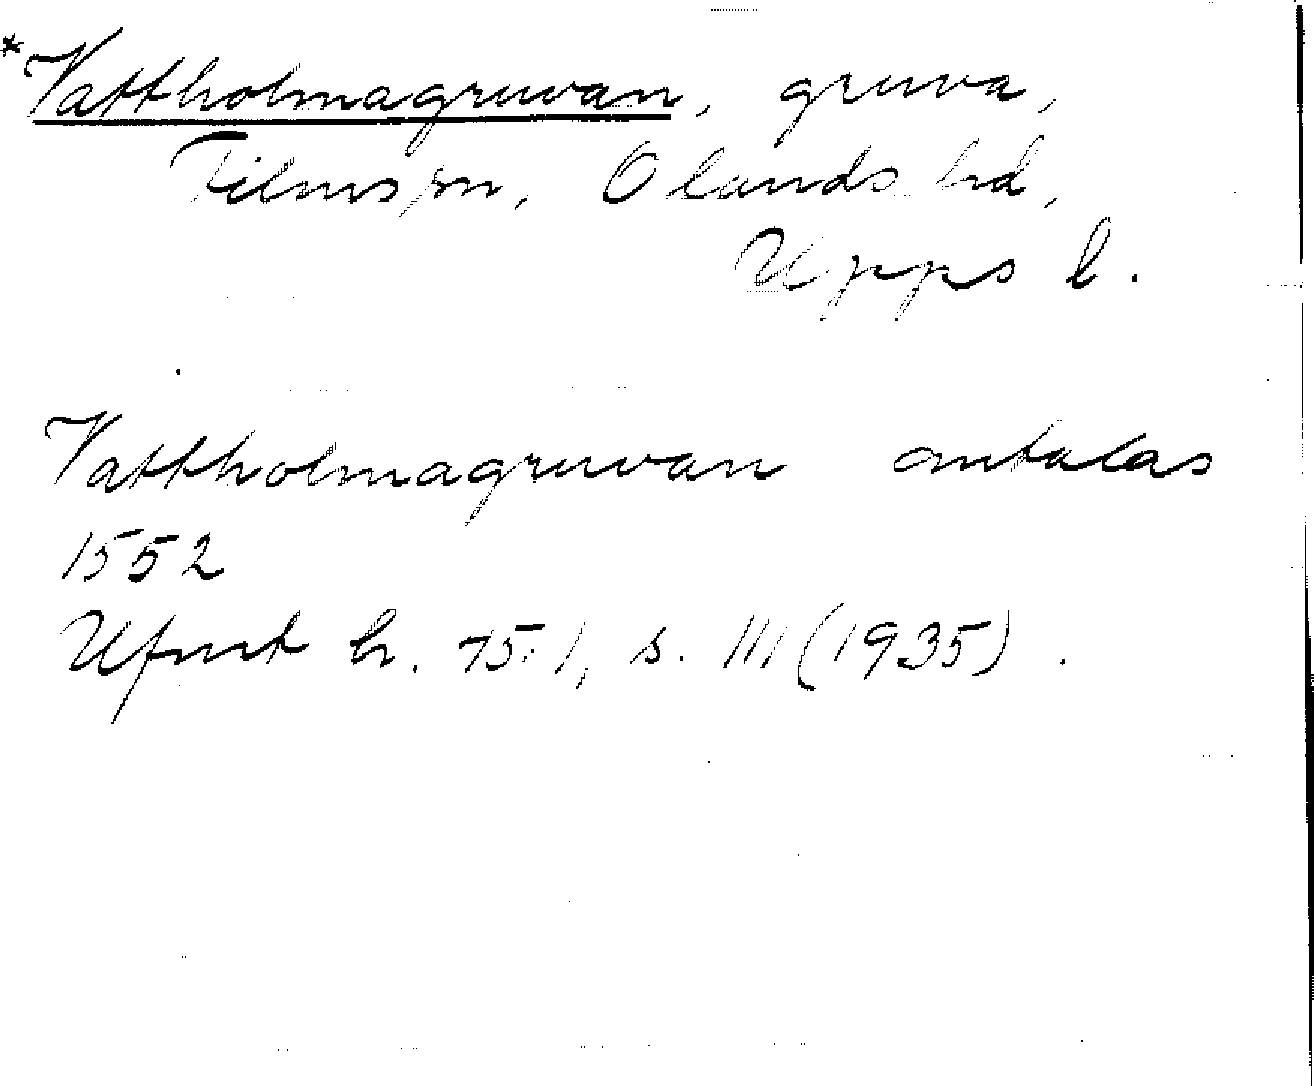 *Vattholmagruvan, gruva,
Films sn, Olands hd,
Upps l.
Vattholmagruvan omtalas
1552
Ufmt h. 75:1, s. 111 (1935).